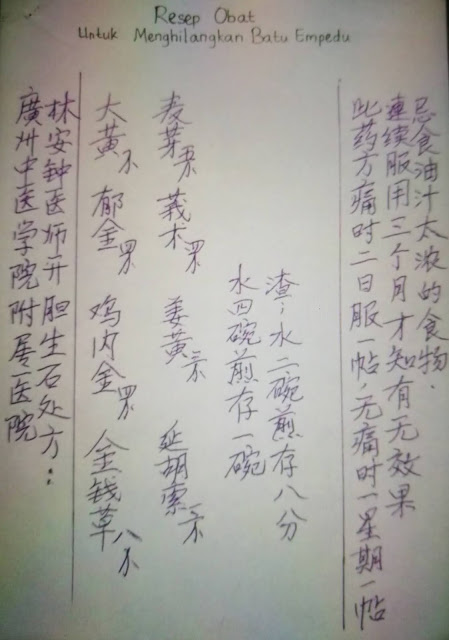 Resep Obat
Untuk Menghilangkan Batu Empedu
廣州中医学院附属医院
林安钟医师开胆生石处方:
大黄 郁金 鸡内金 金钱草
麦芽 莪术 姜黄 延胡索
水四碗煎存一碗
渣,水二碗煎存八分
此药方痛时二日服一帖,无痛时一星期一帖
連续服用三个月才知有无效果
忌食油汁太浓的食物.